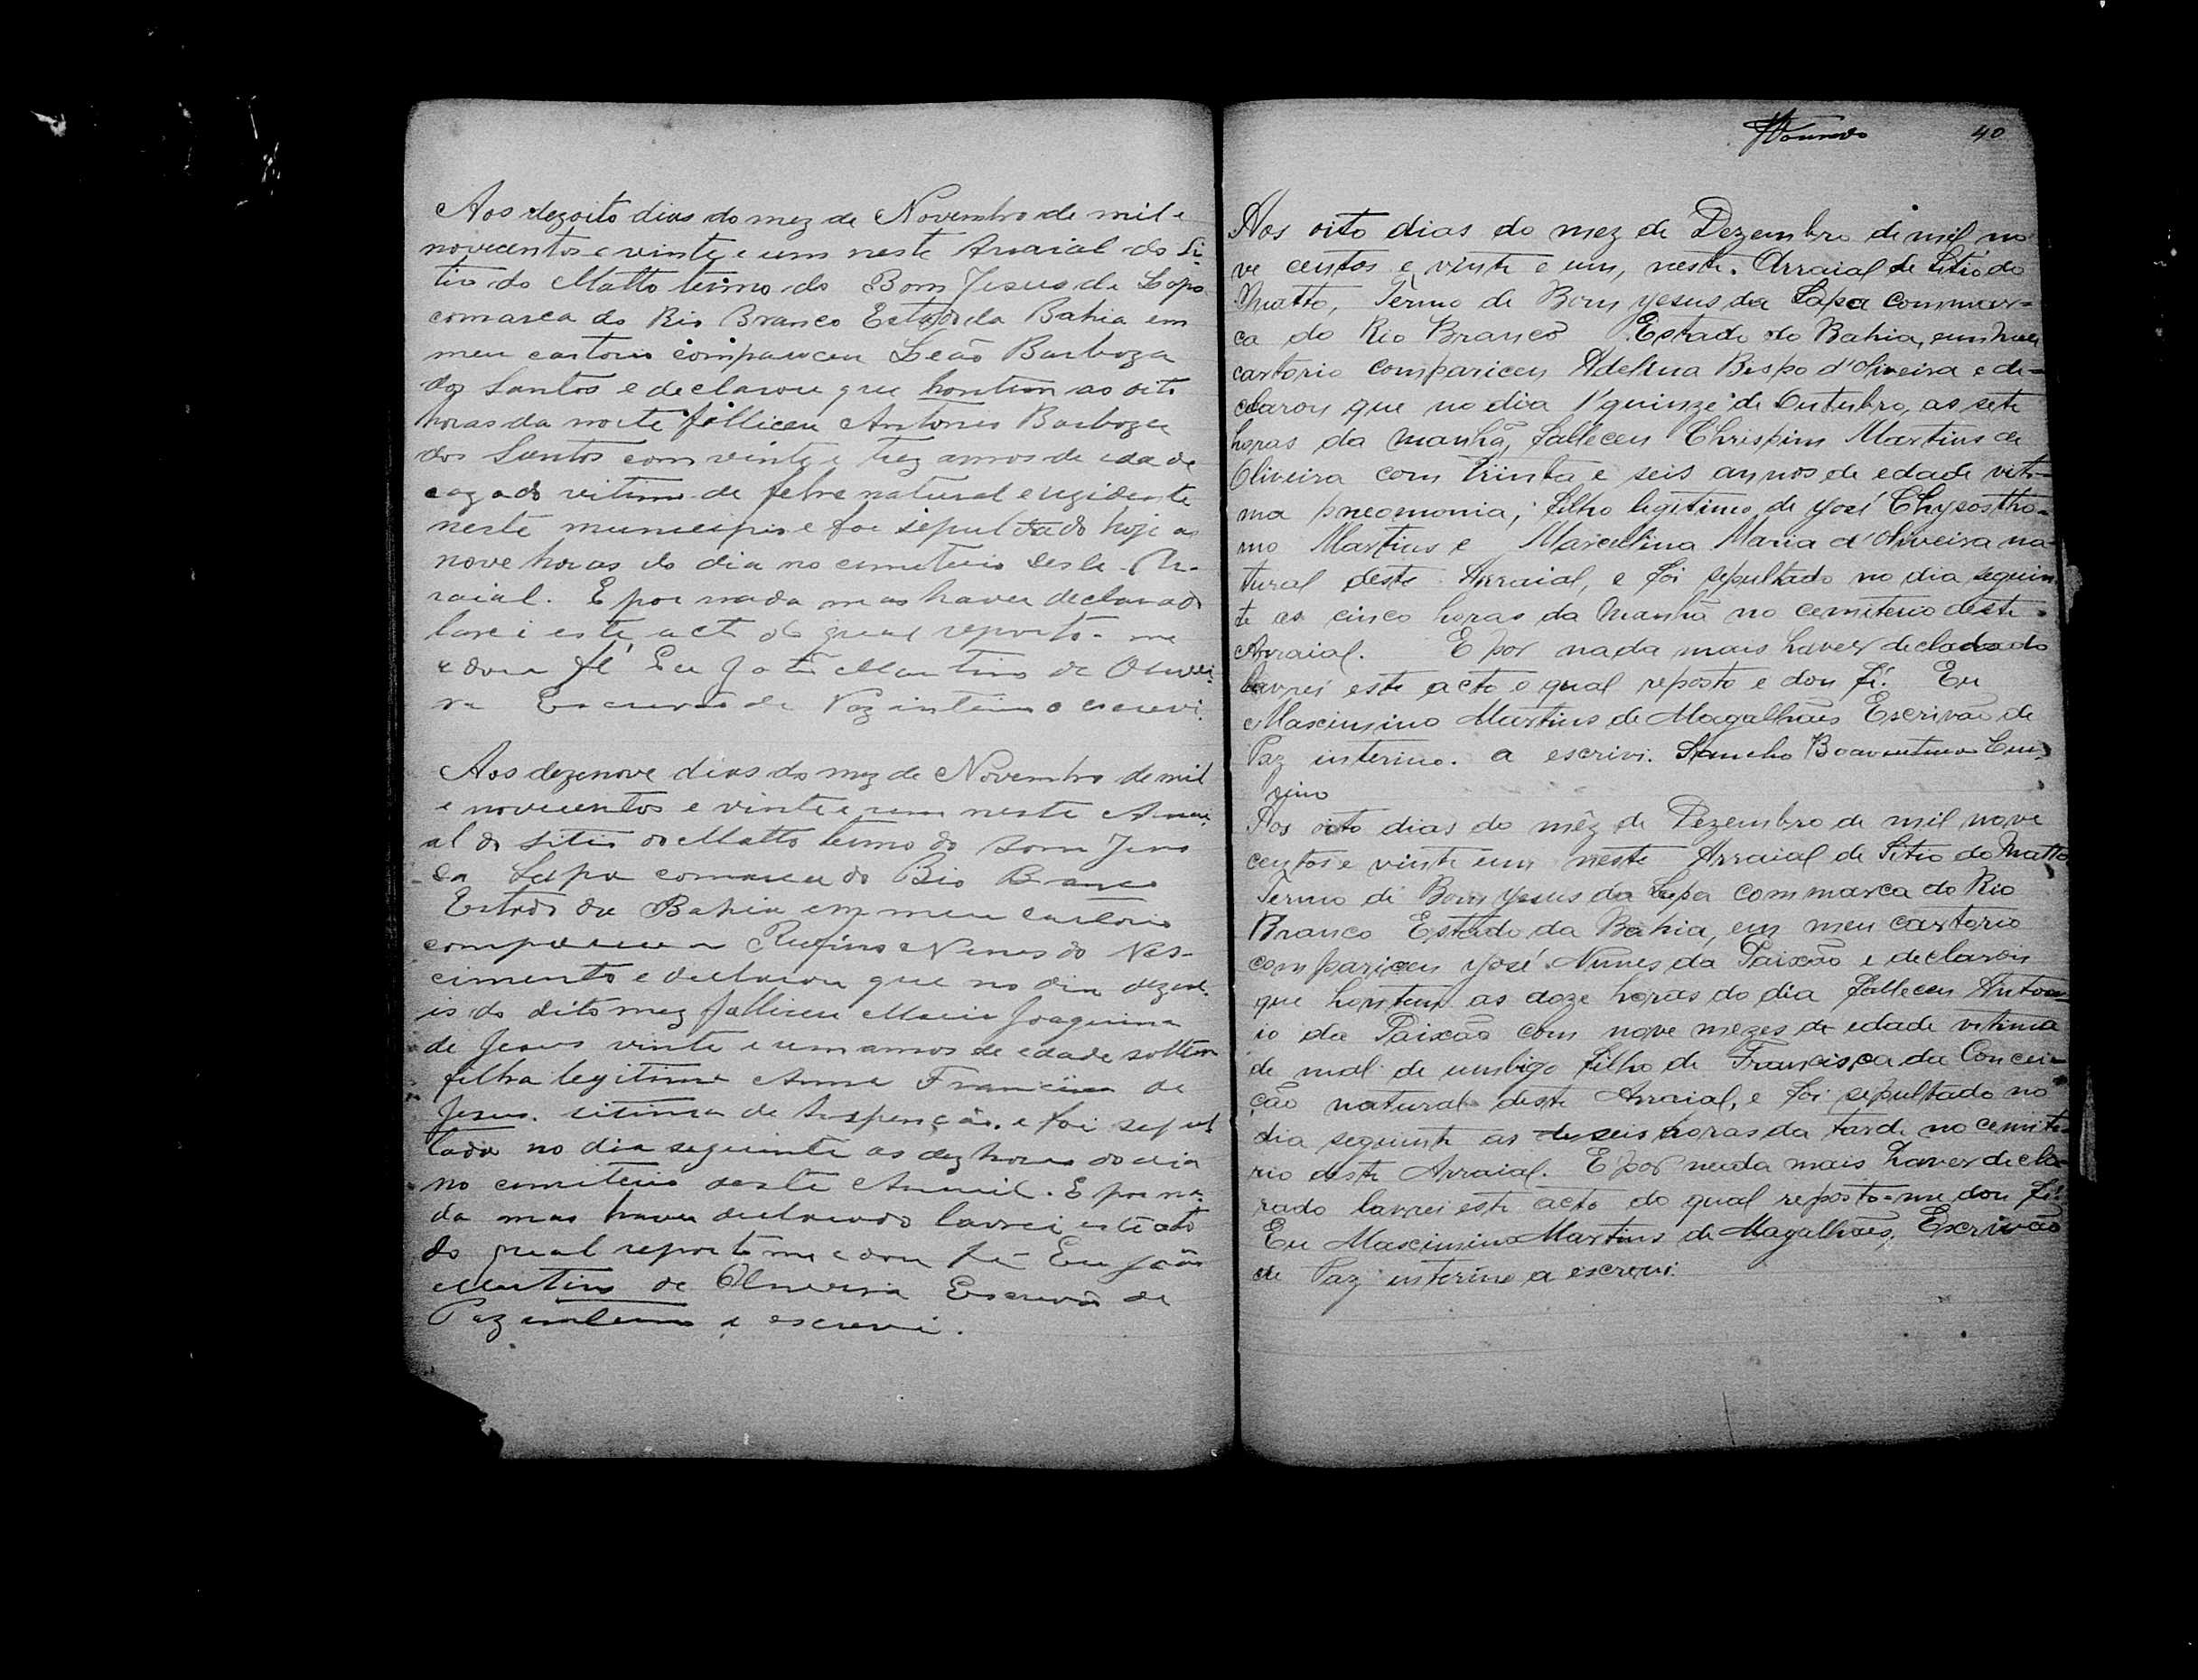 Aos dezoito dias do mez de Novembro de mil e
novecentos e vinte e um neste Arraial do Si-
tio do Matto termo do Bom Jesus da Lapa
comarca do Rio Branco Estado da Bahia em
meu cartorio compareceu Leão Barboza
dos Santos e declarou que hontem as oito
horas da noite falliceu Antonio Barboza
dos Santos com vinte e trez annos de edade
cazado vitima de febre natural e rezidente
neste municipio e foi sepultado hoje as
nove horas do dia no cemiterio deste Ar-
raial. E por nada mas haver declarado
lavrei este acto do qual reporto-me
e dou fé Eu João Martins de Olivei-
ra Escrivão de Paz interino o escrevi.
Aos dezenove dias do mez de Novembro de mil
e novecentos e vinte e um neste Arrai-
al do Sitio do Matto termo do Bom Jesus
da Lapa comarca do Rio Branco
Estado da Bahia em meu cartorio
compareceu Rufino Nunes do Nas-
cimento e declarou que no dia dezes-
eis do dito mez falliceu Maria Joaquina
de Jesus vinte e um annos de edade solteira
filha legitima Anna Francisca de
Jesus. vitima de Suspenção. e foi sepul
tada no dia seguinte as dez horas do dia
no cemiterio deste Arraial. E por na-
da mas haver declarado lavrei este acto
do qual reporto me e dou fé Eu João
Martins de Oliveira Escrivão de
Paz interino o escrevi.
40
Aos oito dias do mez de Dezembro de mil no
ve centos e vinte e um, neste. Arraial de Sitio do
Matto, Termo de Bom Yesus da Lapa commar-
ca do Rio Branco Estado do Bahia, em meu
cartorio compariceu Adelina Bispo d'Oliveira e de-
clarou que no dia 1'quinze de Outubro, as sete
horas da manhã, falleceu Chrispim Martins de
Oliveira com trinta e seis annos de edade viti-
ma pneomonia, filho legitimo de Yosé Chysostho-
mo Martins e Marculina Maria d'Oliveira na-
tural deste Arraial, e foi sepultado no dia seguin
te as cinco horas da manhã no cemiterio deste
Arraial. E por nada mais haver declarado
lavrei este acto o qual reposto e dou fé. Eu
Mascimino Martins de Magalhães Escrivão de
Paz interino. a escrivi. Sancho Boaventura
Aos oito dias do mêz de Dezembro de mil nove
centos e vinte um neste Arraial de Sitio do Matto
Termo di Bom Yesus da Lapa commarca do Rio
Branco Estado da Bahia, em meu cartorio
compariceu Yosé Nunes da Paixão e declarou
que hontem as doze horas do dia falleceu Anton-
io da Paixão com nove mezes de edade vitima
de mal de umbigo filho de Francisca da Concei-
ção natural deste Arraial, e foi sepultado no
dia seguinte as de seis horas da tarde no cemite-
rio deste Arraial. E por nada mais haver decla-
rado lavrei este acto do qual reposto-me dou fé.
Eu Mascimino Martins de Magalhães, Escrivão
de Paz interino a escrevi.